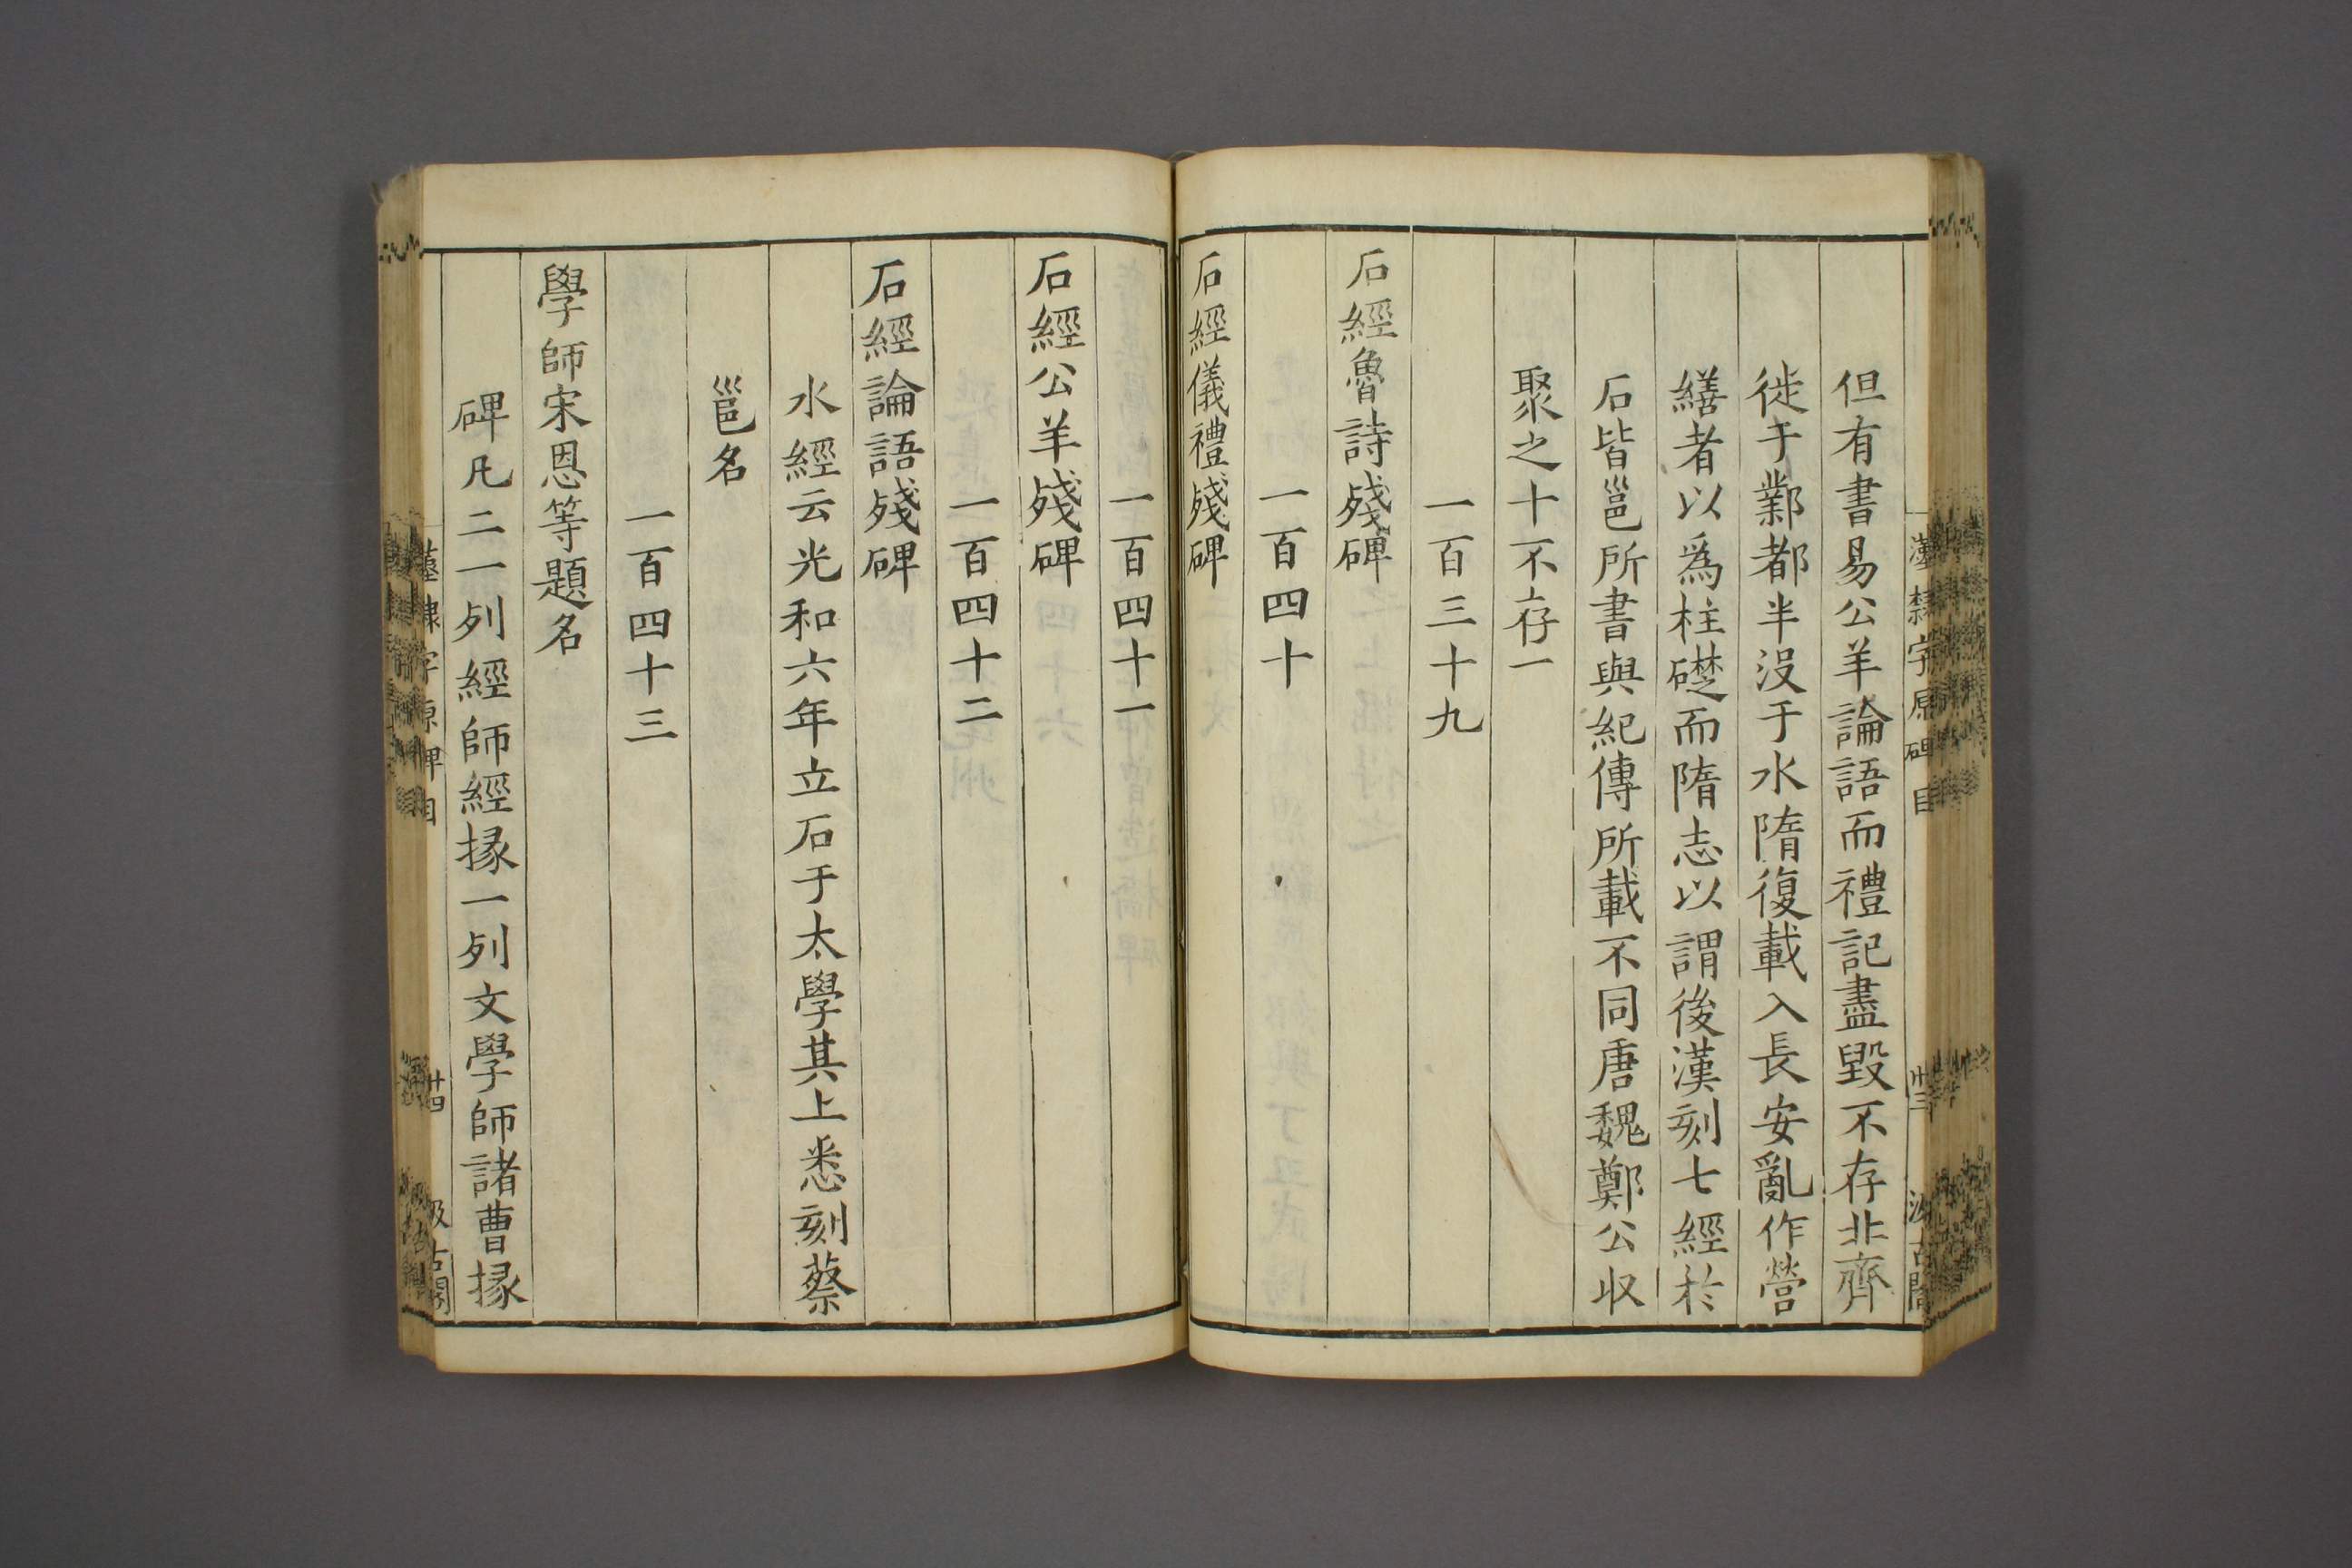 漢隸字原碑目
卅三
汲古閣
但有書易公羊論語而禮記盡毀不存北齊
徙于鄴都半沒于水隋復載入長安亂作營
繕者以爲柱礎而隋志以謂後漢刻七經於
石皆邕所書與紀傳所載不同唐魏鄭公收
聚之十不存一
一百三十九
石經魯詩殘碑
一百四十
石經儀禮殘碑
一百四十一
石經公羊殘碑
一百四十二
石經論語殘碑
水經云光和六年立石于太學其上悉刻蔡
邕名
一百四十三
學師宋恩等題名
碑凡二一列經師經掾一列文學師諸曹掾
漢隸字原碑目
廿四
汲古閣